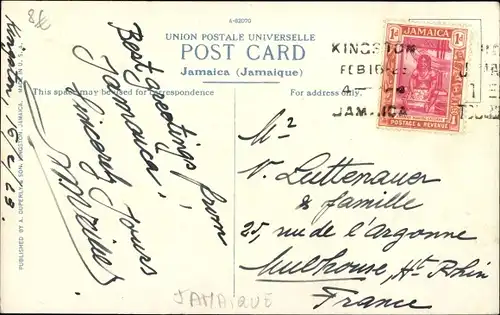 4-62070
UNION POSTALE UNIVERSELLE
POST CARD
Jamaica (Jamaique)
This space may be used for correspondence
For address only.
MADE IN U. S. A.
PUBLISHED BY A. DUPERLY & SON, KINGSTON, JAMAICA.
Kingston, 15/2/23.
Best greetings from
Jamaica!
Sincerely yours
JAMAICA
1d 1d
POSTAGE & REVENUE
KINGSTON
FEB 16
JAMAICA
Mr
V. Luttenauer
& famille
25, rue de l'Argonne
Mulhouse, Ht. Rhin
France
JAMAIQUE